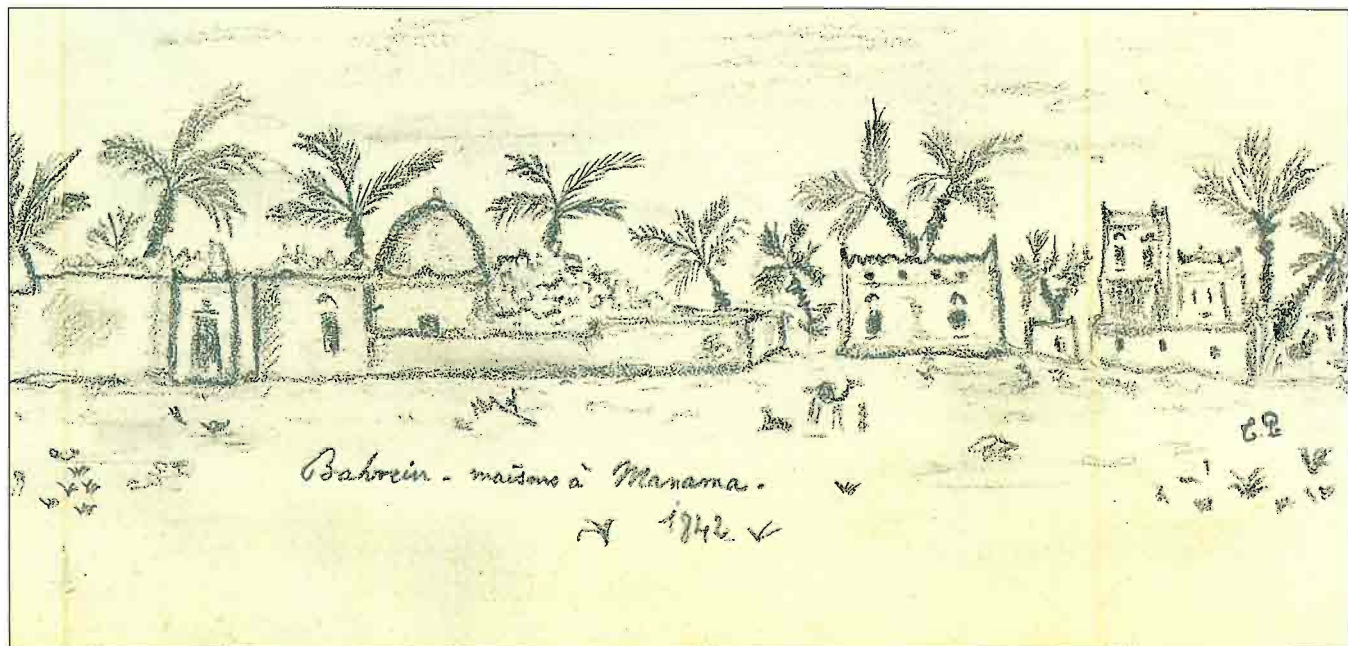 Bahrein - maisons à Manama.
1842